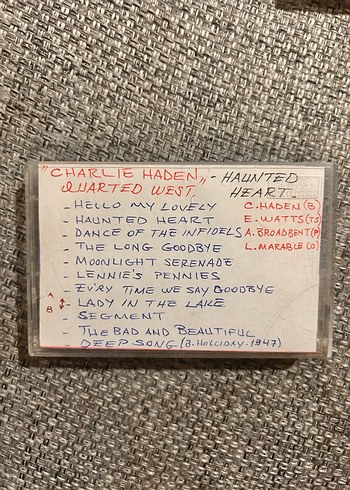 "CHARLIE HADEN„ - HAUNTED
QUARTED WEST. HEART.
- HELLO MY LOVELY C. HADEN (B)
- HAUNTED HEART E. WATTS (TS)
- DANCE OF THE INFIDELS A. BROADBENT (P)
- THE LONG GOODBYE L. MARABLE (D)
- MOONLIGHT SERENADE
- LENNIE'S PENNIES
- EV'RY TIME WE SAY GOODBYE
A
B - LADY IN THE LAKE
- SEGMENT
- THE BAD AND BEAUTIFUL
- DEEP SONG (B. HOLLIDAY - 1947)